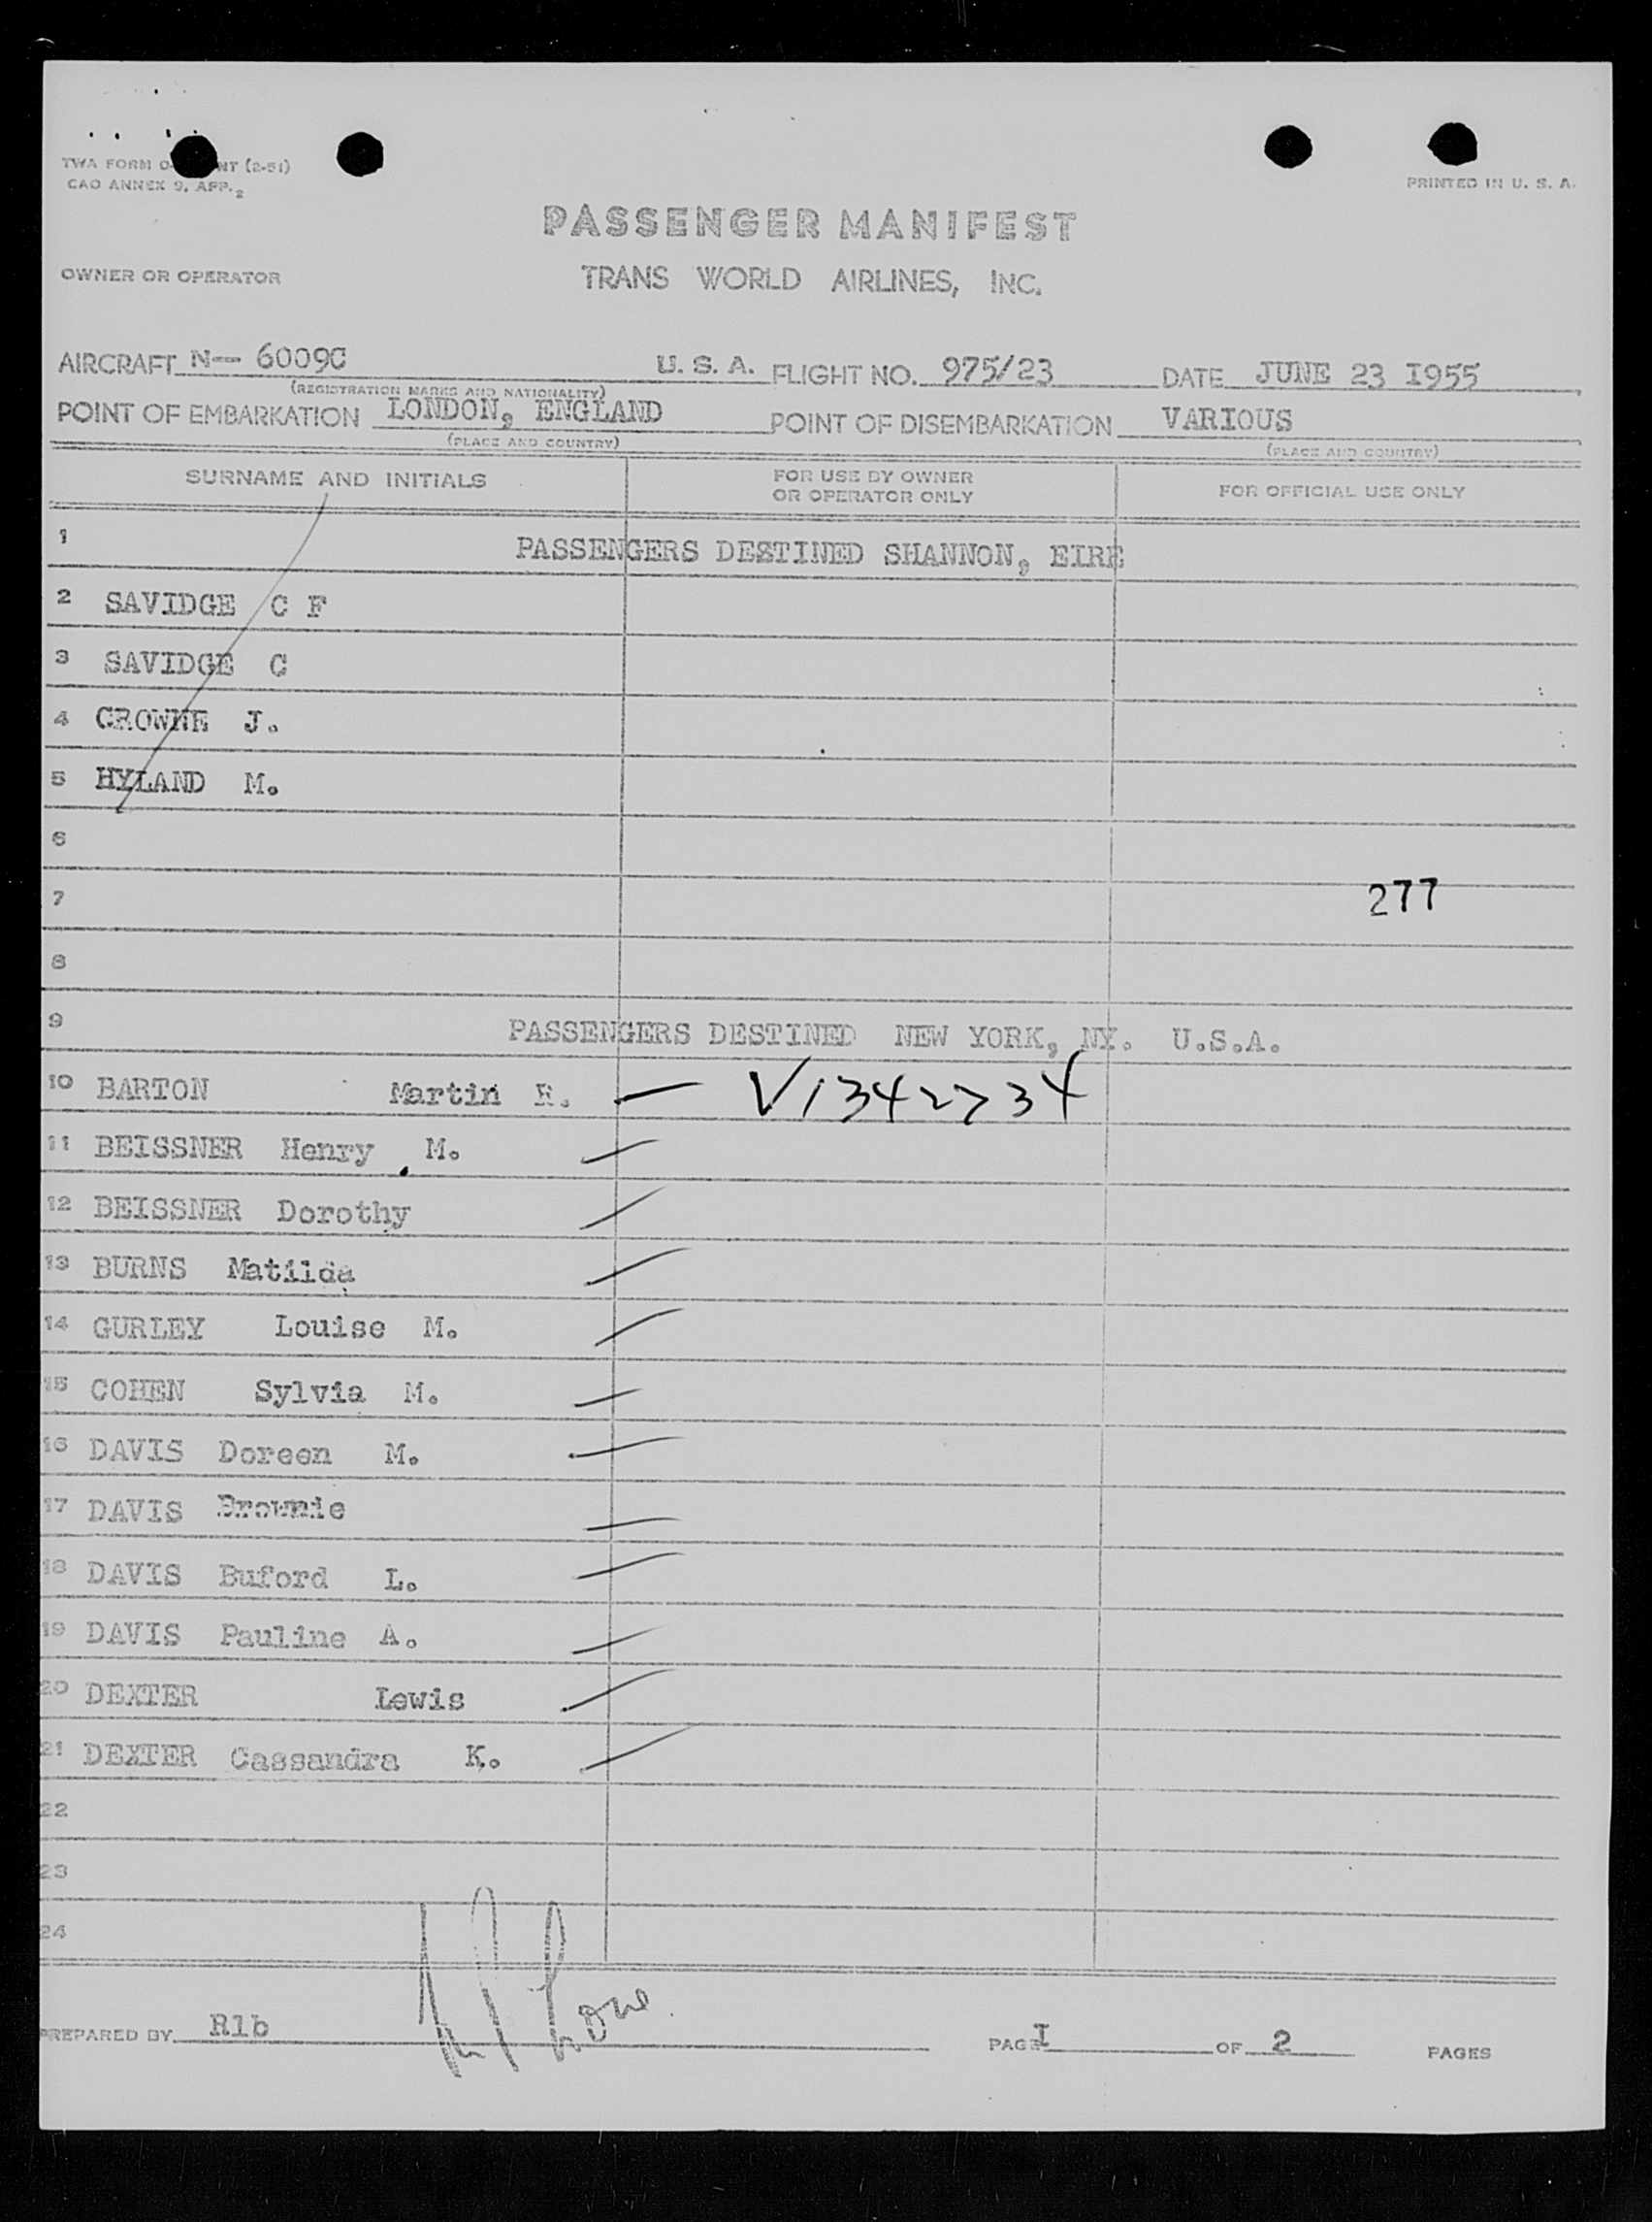 TWA FORM O NT (2-51)
CAO ANNEX 9, APP. 2
PRINTED IN U. S. A.
PASSENGER MANIFEST
OWNER OR OPERATOR TRANS WORLD AIRLINES, INC.
AIRCRAFT N-- 6009C U. S. A. FLIGHT NO. 975/23 DATE JUNE 23 I955
(REGISTRATION MARKS AND NATIONALITY)
POINT OF EMBARKATION LONDON, ENGLAND POINT OF DISEMBARKATION VARIOUS
(PLACE AND COUNTRY) (PLACE AND COUNTRY)
SURNAME AND INITIALS FOR USE BY OWNER OR OPERATOR ONLY FOR OFFICIAL USE ONLY
1 PASSENGERS DESTINED SHANNON, EIRE
2 SAVIDGE C F
3 SAVIDGE C
4 CROWNE J.
5 HYLAND M.
6
7 277
8
9 PASSENGERS DESTINED NEW YORK, NY. U.S.A.
10 BARTON Martin R. — V1342734
11 BEISSNER Henry M.
12 BEISSNER Dorothy
13 BURNS Matilda
14 GURLEY Louise M.
15 COHEN Sylvia M.
16 DAVIS Doreen M.
17 DAVIS Brownie
18 DAVIS Buford L.
19 DAVIS Pauline A.
20 DEXTER Lewis
21 DEXTER Cassandra K.
22
23
24
PREPARED BY Rlb PAGE I OF 2 PAGES